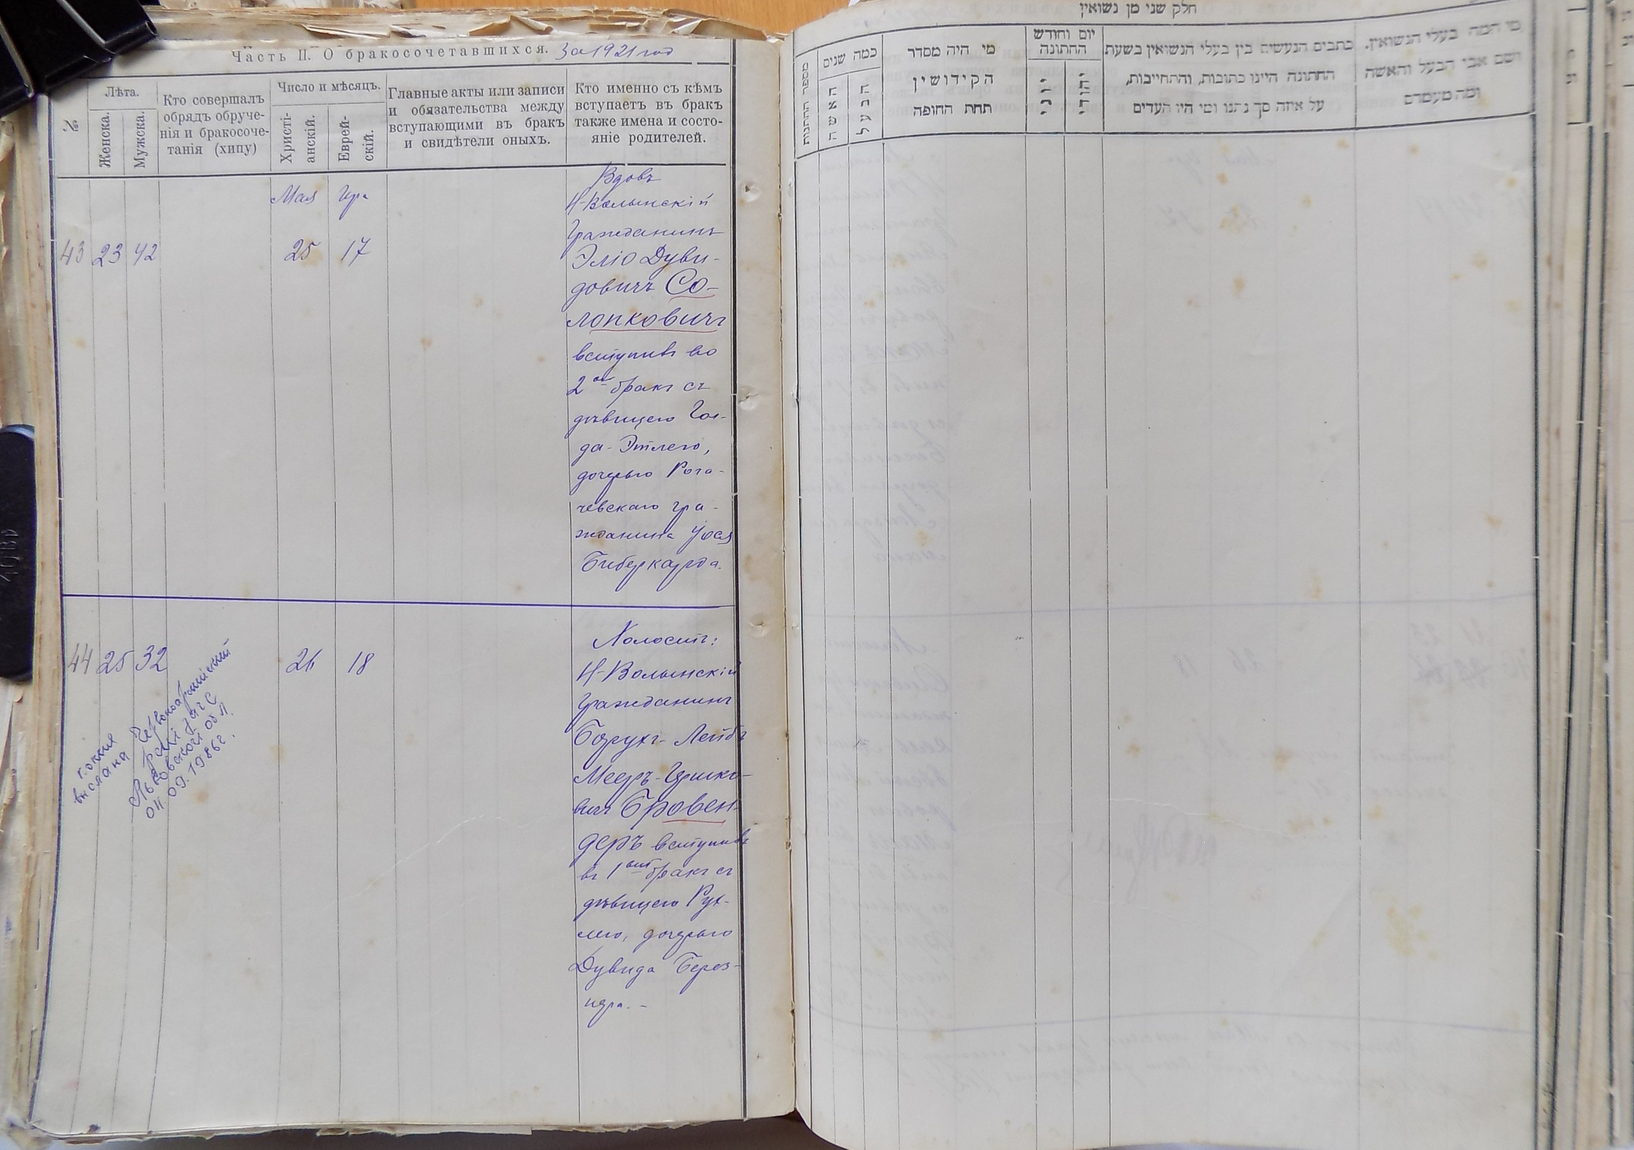 Часть II. О бракосочетавшихся. За 1921 год
№
Лѣта.
Женска.
Мужска.
Кто совершалъ
обрядъ обруче-
нія и бракосоче-
танія (хипу)
Число и мѣсяцъ.
Христі-
анскій.
Еврей-
скій.
Главные акты или записи
и обязательства между
вступающими въ бракъ
и свидѣтели оныхъ.
Кто именно съ кѣмъ
вступаетъ въ бракъ
также имена и состо-
яніе родителей.
Мая Ира
43 23 42 25 17
Вдовъ
Н-Волынскій
Гражданинъ
Эліо Дуви-
довичъ Со-
лопковичъ
вступивъ во
2 ой бракъ съ
дѣвицею Гол-
да-Этлею,
дочерью Рога-
чевскаго гра-
жданина Іося
Биберкарда.
44 25 32 26 18
Холост:
Н-Волынскій
Гражданинъ
Борухъ-Лейбъ
Мееръ-Ирико-
вичъ Бровен-
деръ вступивъ
въ 1 ый бракъ съ
дѣвицею Рух-
лею, дочерью
Дувида Берез-
ира. -
копия
выслана
Львовской обл
09.1986г.
חלק שני מן נשואין
מספר החתונות
כמה שנים
האשה
הבעל
מי היה מסדר
הקידושין
תחת החופה
יום וחודש
החתונה
יוני
יהודי
כתבים הנעשים בין בעלי הנשואין בשעת
החתונה היינו כתובות, והתחייבות,
על איזה סך נתנו ומי היו העדים
מי המה בעלי הנשואין,
ושם אבי הבעל והאשה
ומה מעמדם